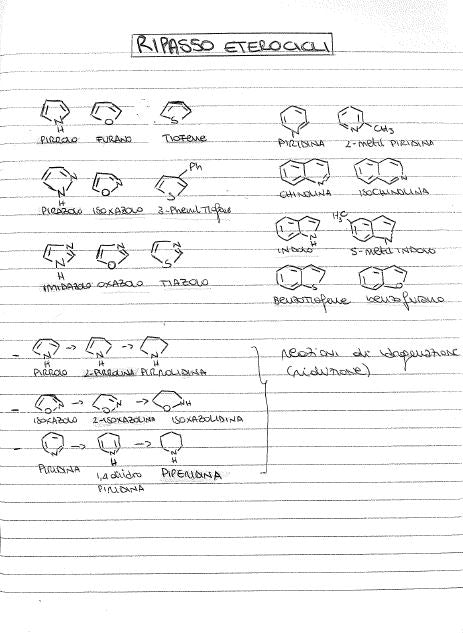 RIPASSO ETEROCICLI
PIRROLO FURANO TIOFENE PIRIDINA 2-metil PIRIDINA
CH3
Ph
PIRAZOLO ISOXAZOLO 3-Phenil Tiofene CHINOLINA ISOCHINOLINA
H3C
IMIDAZOLO OXAZOLO TIAZOLO INDOLO 5-metil INDOLO
BENZOTIOFENE benzofurano
- PIRROLO → 2-PIRROLINA → PIRROLIDINA
reazioni di idrogenazione
(riduzione)
- ISOXAZOLO → 2-ISOXAZOLINA → ISOXAZOLIDINA
- PIRIDINA → 1,4 diidro PIRIDINA → PIPERIDINA